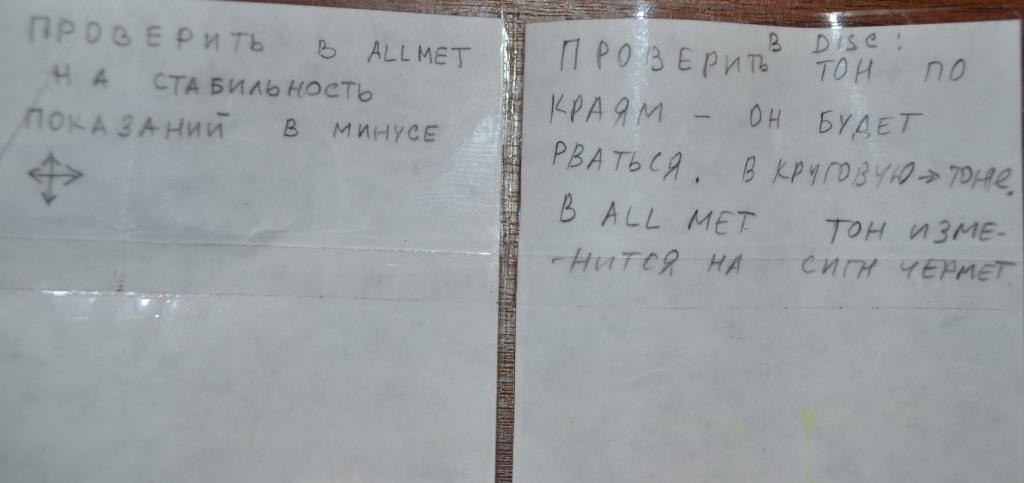 ПРОВЕРИТЬ В ALLMET
НА СТАБИЛЬНОСТЬ
ПОКАЗАНИЙ В МИНУСЕ
В DISC:
ПРОВЕРИТЬ ТОН ПО
КРАЯМ – ОН БУДЕТ
РВАТЬСЯ. В КРУГОВУЮ → ТОЖЕ.
В ALL MET ТОН ИЗМЕ-
-НИТСЯ НА СИГН ЧЕРМЕТ